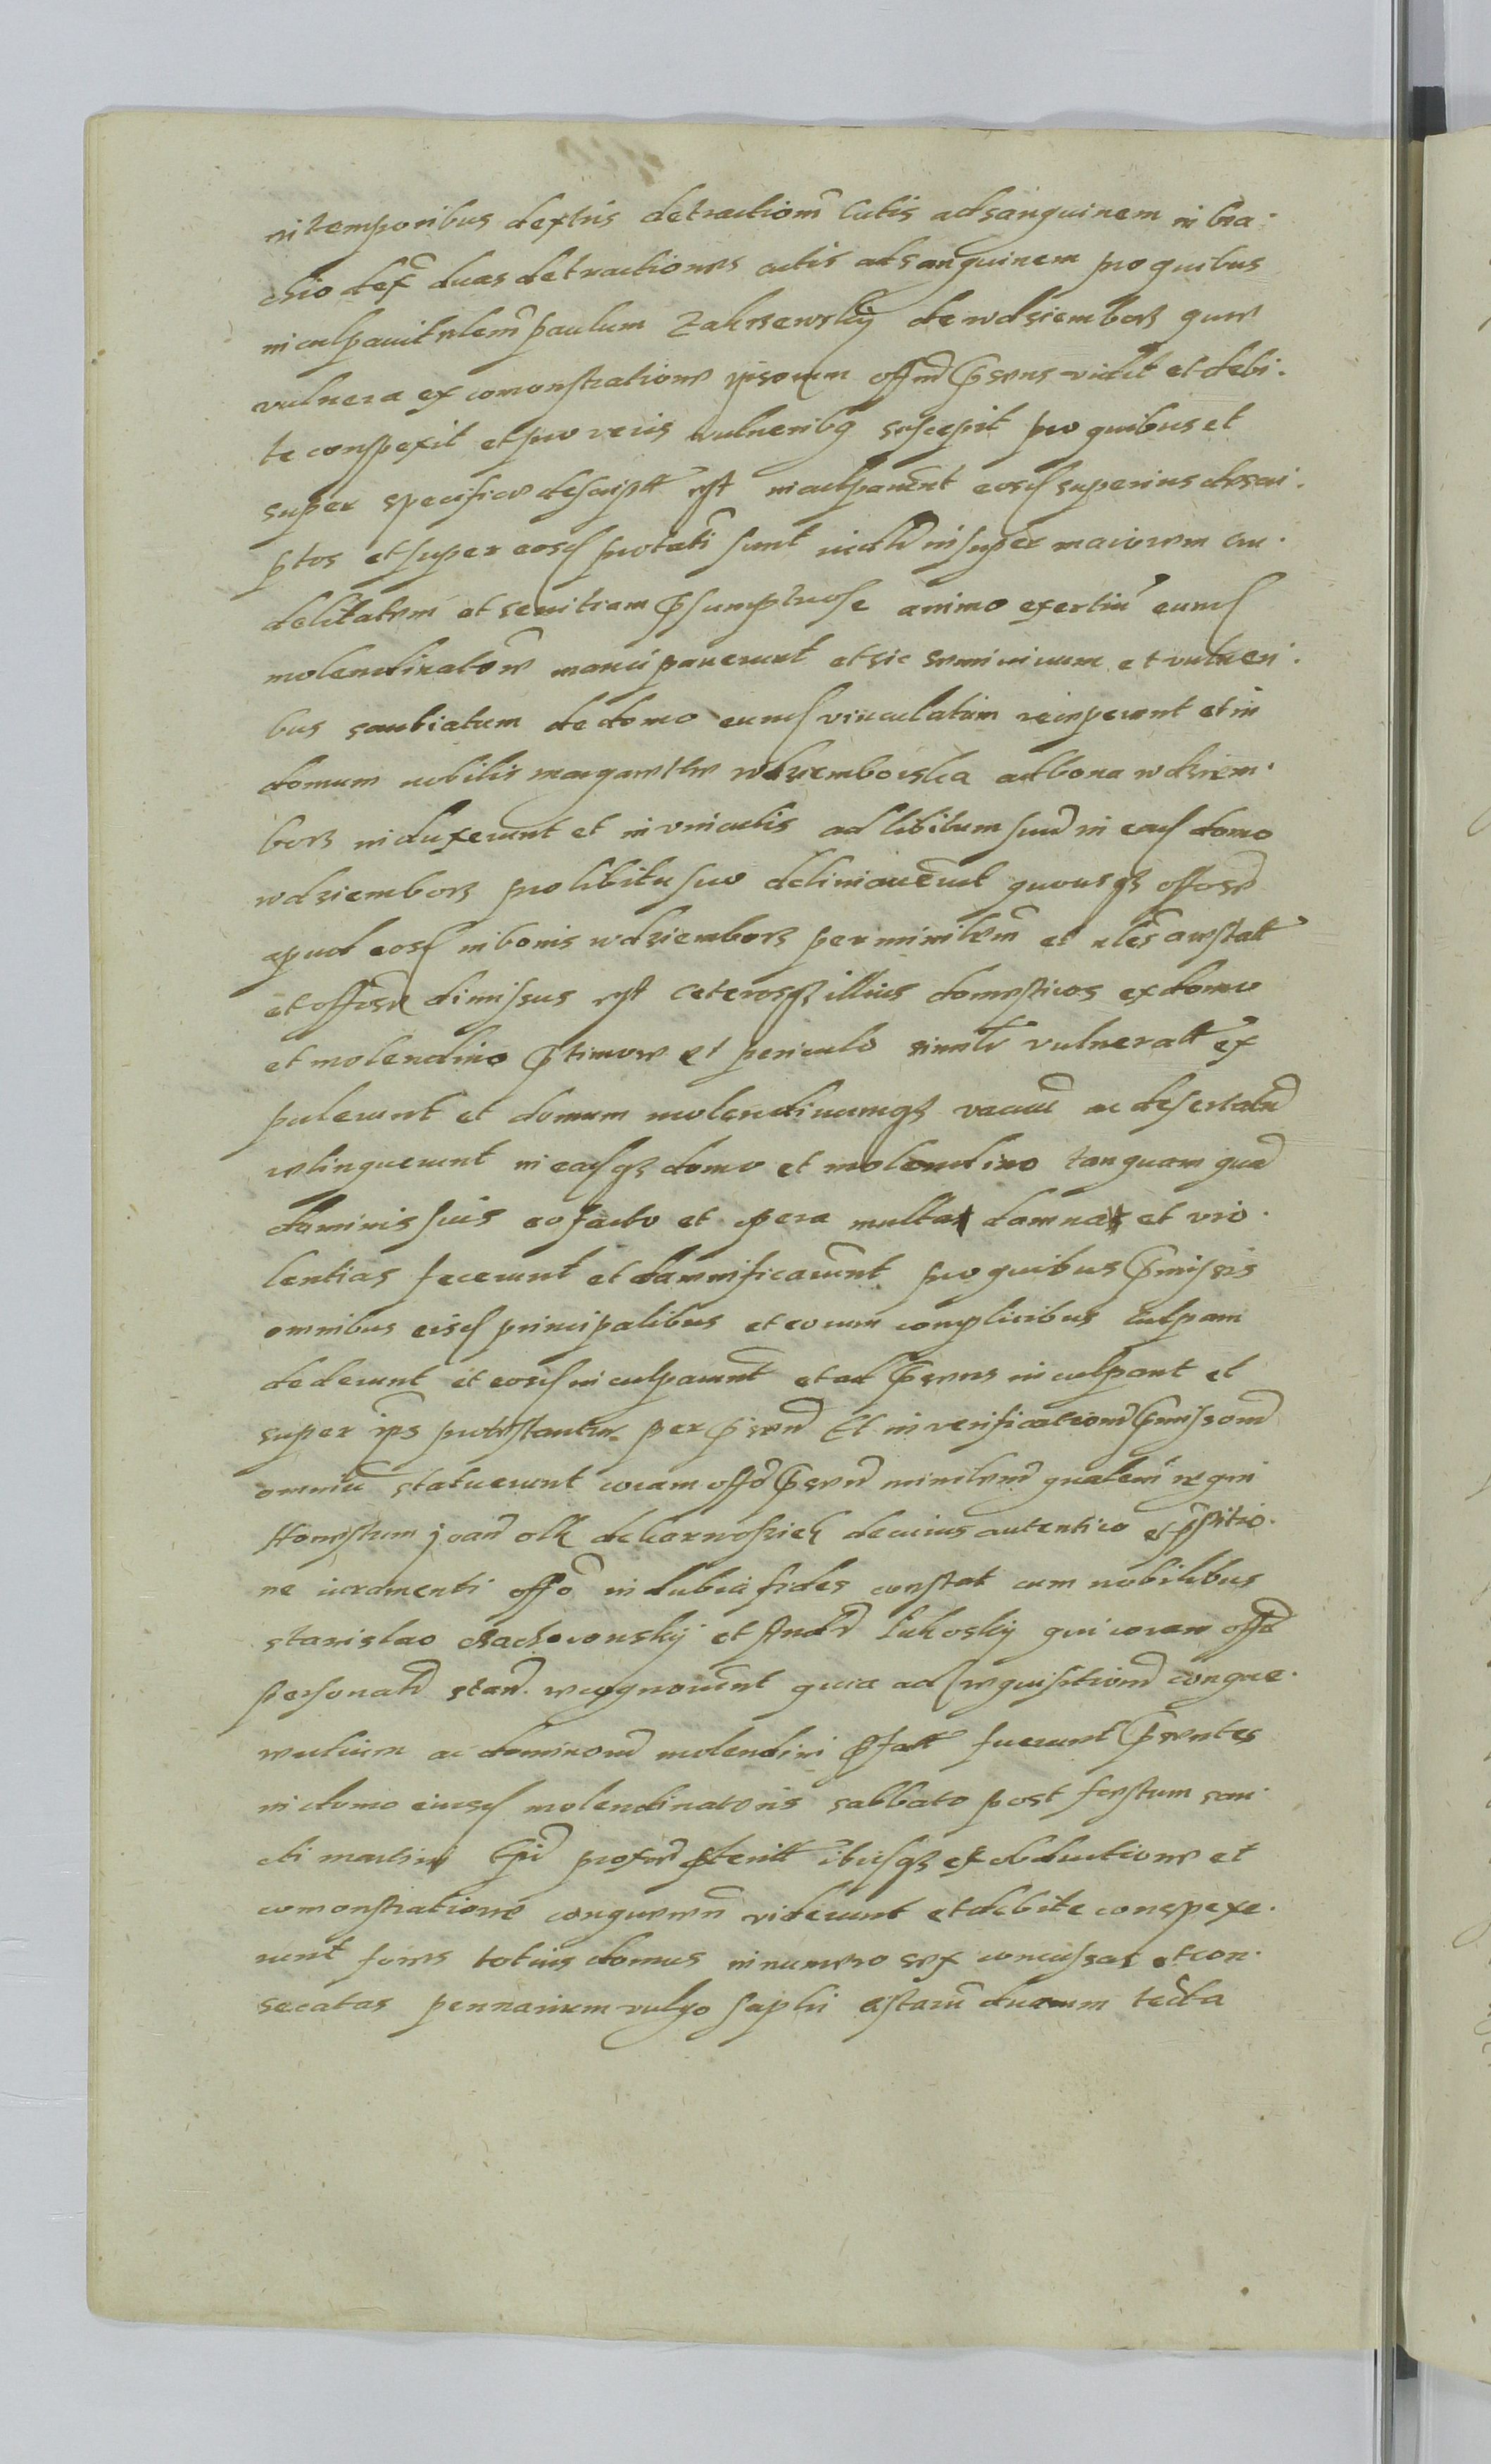 in temporibus dextris detractionem Cutis ad sanguinem in bra.
chio dex duas detractiones cutis ad sanguinem pro quibus
inculpavit nlem paulum Zakrzewsky de wdziemborz que
vulnera ex comonstratione ipsorum offm psens vidit et debi.
te conspexit et pro veris vulneribq suscepit pro quibus et
super specifice descript est inculparunt eosd superius descri.
ptos et super eosd protati sunt insuper maiorem cru.
delitatem et sevitiam psumptuose animo exertim eund
molendinatore mancipaverunt et sic semivivum et vulneri.
bus saubiatum de domo eund vinculatum receperunt et in
domum nobilis margarethe wdzemborska ad bona wdziem.
borz induxerunt et in vinculis ad libitum suum in ead domo
wdziemborz pro libitu suo detinuerunt quousqz
apud eosd in bonis wdziemborz per minilem et nles arestatt
et dimissus est Ceterosqz illius domesticos ex domo
et molendino ptimore et periculo similr vulneratt ex
pulerunt et domum molendinumqz vacuu ac desertatu
relinquerunt in eadqz domo et molendino tanquam qua
dominis suis eo facto et opera multa damna et vio.
lentias fecerunt et damnificarunt pro quibus pmissis
omnibus eisd principalibus et eorum complicibus culpam
dederunt et eosd inculparunt et ad psens inculpant et
super ips protestantur per psent Et in verificationem pmissorum
omniu statuerunt coram offo psenti minilem gnalem regni
Honestum joan olk de karnoszicz de cuius autentico et pstitio.
ne iuramenti offo indubia fides constat cum nobilibus
stanislao chachovonsky et Andr Lukosky qui coram offo
personalr stan. recognoverunt quia ad requisitionem conque.
rentium ac dominorum molendini pfatt fuerunt psentes
in domo eiusd molendinatoris sabbato post festum san
cti martini Epi proxime pteritt ibidqz ex obductione et
comonstratione conqueren viderunt et debite conspexe.
runt fores totius domus in numero sex concussas et con.
secatas pennarium vulgo saphi cistaru duarum tecta